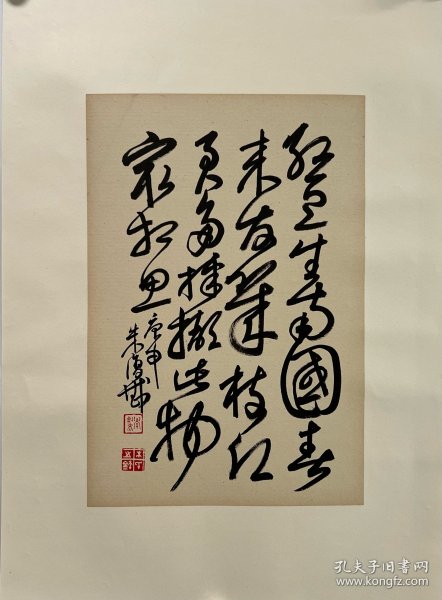 红豆生南國春
来发幾枝
君多採撷此物
最相思
庚申
朱復戡
孔夫子旧书网
www.kongfz.com